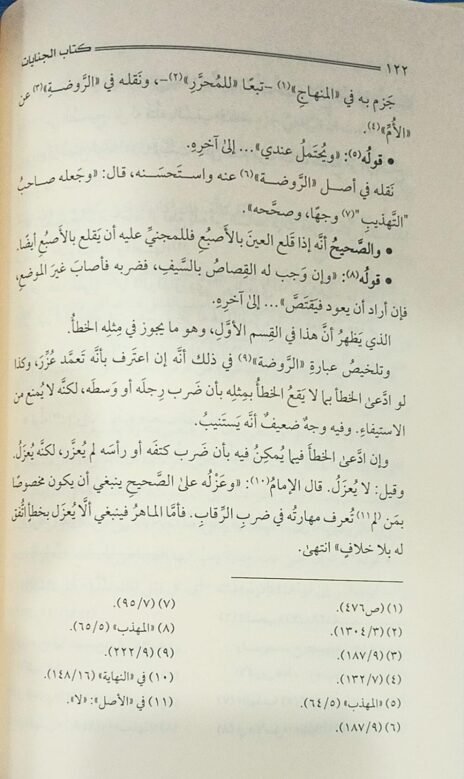 ١٢٢ كتاب الجنايات
جَزم به في «المنهاج»(١) -تبعًا «للمُحرَّرِ»(٢)-، ونَقله في «الرَّوضةِ»(٣) عن
«الأُمِّ»(٤).
• قولُه(٥): «ويُحتَملُ عندي»... إلىٰ آخرِه.
نَقله في أصل «الرَّوضة»(٦) عنه واستَحسَنه، قال: «وجَعله صاحبُ
"التَّهذيب"(٧) وجهًا، وصحَّحه».
• والصَّحيحُ أنَّه إذا قلع العينَ بالأصبُعِ فللمجنيِّ عليه أن يَقلع بالأصبُع أيضًا.
• قولُه(٨): «وإن وَجب له القِصاصُ بالسَّيفِ، فضربه فأصابَ غيرَ الموضعِ،
فإن أراد أن يعود فيَقتَصَّ»... إلىٰ آخرِه.
الذي يَظهرُ أنَّ هذا في القِسم الأوَّلِ، وهو ما يجوز في مِثلِه الخطأُ.
وتلخيصُ عبارةِ «الرَّوضة»(٩) في ذلك أنَّه إن اعتَرف بأنَّه تَعمَّد عُزِّرَ، وكذا
لو ادَّعىٰ الخطأ بما لا يَقعُ الخطأُ بمِثلِه بأن ضَرب رِجلَه أو وَسطَه، لكنَّه لا يُمنع من
الاستيفاءِ. وفيه وجهٌ ضعيفٌ أنَّه يَستَنيبُ.
وإن ادَّعىٰ الخطأَ فيما يُمكِنُ فيه بأن ضَرب كتفَه أو رأسَه لم يُعزَّر، لكنَّه يُعزَلُ.
وقيل: لا يُعزَلُ. قال الإمامُ(١٠): «وعَزْلُه علىٰ الصَّحيحِ ينبغي أن يكون مخصوصًا
بمَن [لم](١١) تُعرف مهارتُه في ضربِ الرِّقابِ. فأمَّا الماهرُ فينبغي ألَّا يُعزَل بخطأٍ اتُّفِق
له بلا خلافٍ» انتهىٰ.
(١) (ص٤٧٦).
(٢) (٣/ ١٣٠٤).
(٣) (٩/ ١٨٧).
(٤) (٧/ ١٣٢).
(٥) «المهذب» (٥/ ٦٤).
(٦) (٩/ ١٨٧).
(٧) (٧/ ٩٥).
(٨) «المهذب» (٥/ ٦٥).
(٩) (٩/ ٢٢٢).
(١٠) في «النهاية» (١٦/ ١٤٨).
(١١) في «الأصل»: «لا».